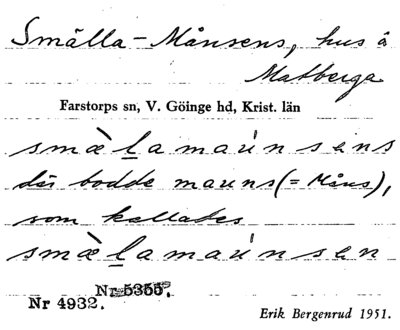 Smålla-Månsens, hus å
Matberga
Farstorps sn, V. Göinge hd, Krist. län
smæ̀lamaùnsens
där bodde mauns (= Måns),
som kallades
smæ̀lamaùnsen
Nr 5355.
Nr 4932.
Erik Bergenrud 1951.